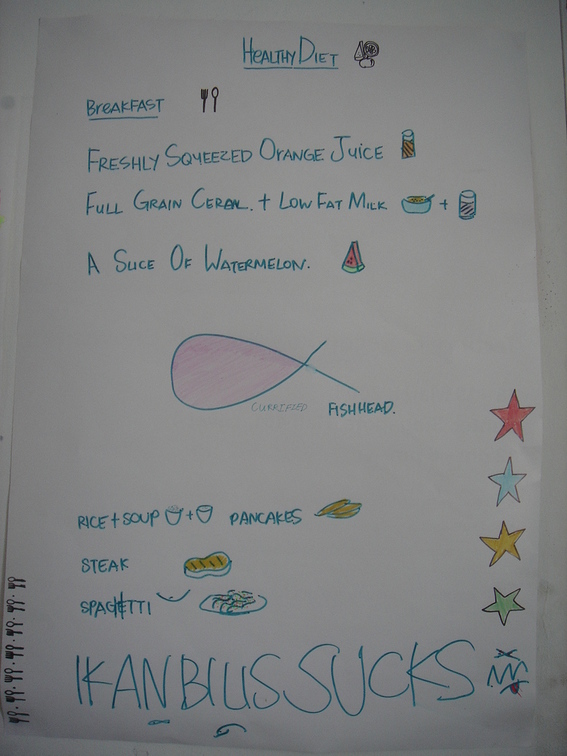 HEALTHY DIET
BREAKFAST
FRESHLY SQUEEZED ORANGE JUICE
FULL GRAIN CEREAL. + LOW FAT MILK +
A SLICE OF WATERMELON.
CURRIFIED FISHHEAD.
RICE + SOUP + PANCAKES
STEAK
SPAGHETTI
IKAN BILIS SUCKS